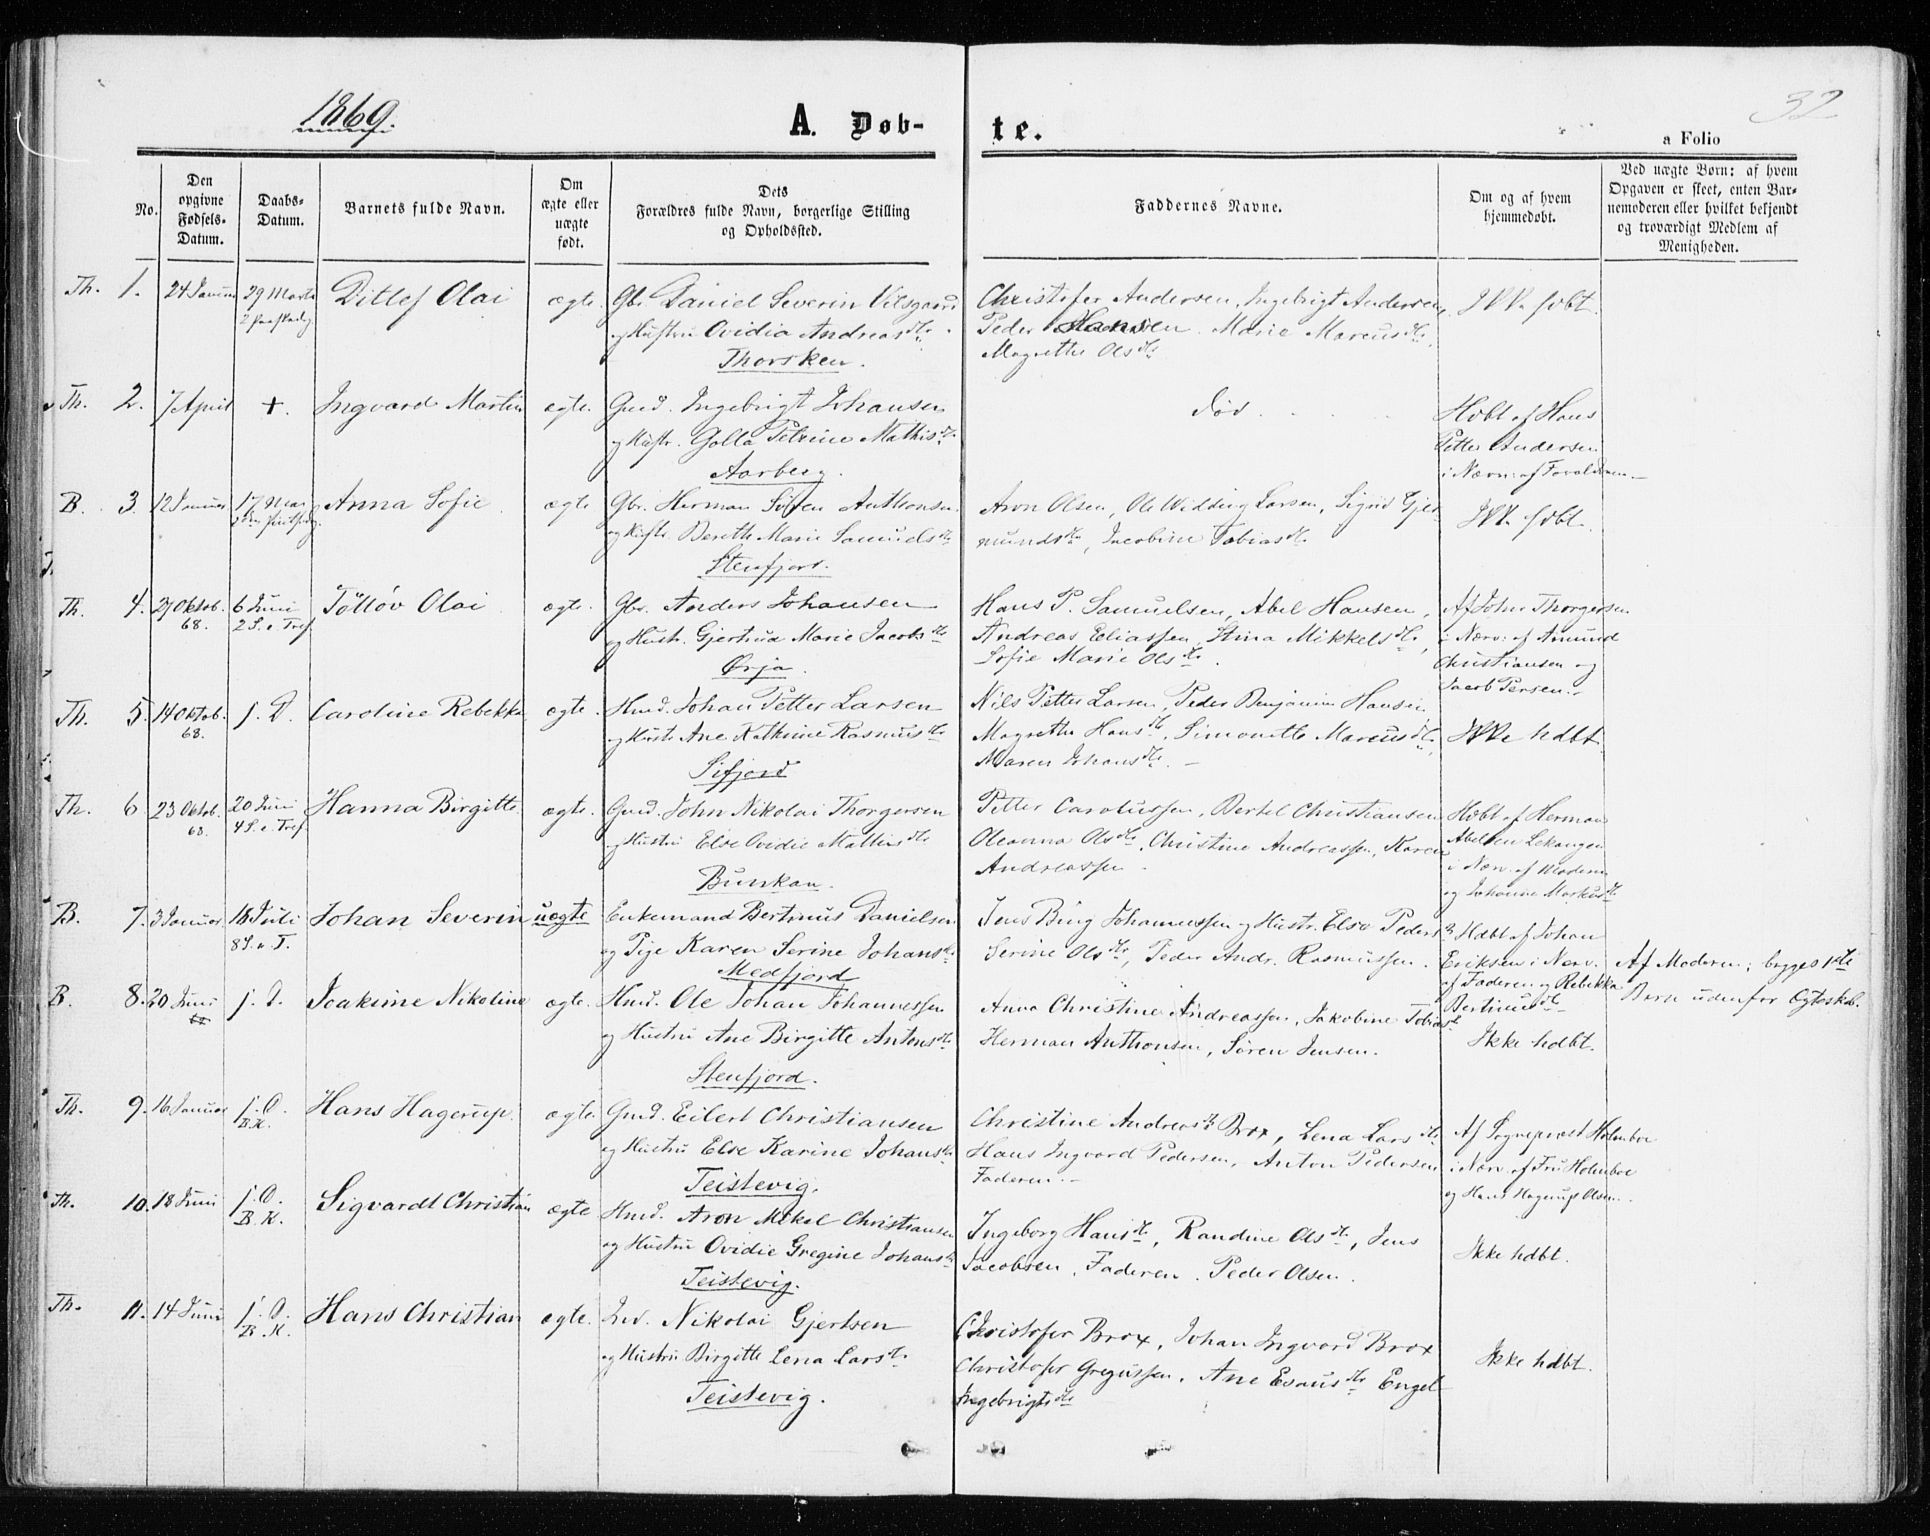 1869.
A. Døb-
te.
32
a Folio
No.
Den opgivne Fødsels-Datum.
Daabs-Datum.
Barnets fulde Navn.
Om ægte eller uægte født.
Dets Forældres fulde Navn, borgerlige Stilling og Opholdssted.
Faddernes Navne.
Om og af hvem hjemmedøbt.
Ved uægte Børn: af hvem Opgaven er skeet, enten Barnemoderen eller hvilket bekjendt og troværdigt Medlem af Menigheden.
Th. 1. 24 Januar 29 Marts Ditlef Olai ægte. Gbr. Daniel Severin Vilsgaard Christofer Andersen, Ingebrigt Andersen, Ikke hdbt.
2 Paaskedag og Hustru Ovidia Andreasdtr. Peder Hansen. Marie Marcusdtr.
Thorsken. Magrethe Olsdtr
Th. 2. 7 April +. Ingvard Martin ægte. Gmd. Ingebrigt Johansen Død. Hdbt af Hans
og Hustr. Golla Petrine Mathisdtr. Petter Andersen
Aarberg. i Nærv: af Forældrene
B. 3. 12 Januar 17 Mai Anna Sofie ægte Gbr. Herman Søren Anthonsen Aron Olsen, Ole Widding Larsen, Sigrid Gjer- Ikke hdbt.
og Hustr. Bereth Marie Samuelsdtr mundsdtr, Jacobine Tobiasdtr
Stenfjord.
Th. 4. 27 Oktob. 6 Juni Tölløv Olai ægte. Gbr. Anders Johansen Hans P. Samuelsen, Abel Hansen, Af John Thorgersen
68. 2 S. e. Tref. og Hustr. Gjertrud Marie Jacobsdtr Andreas Eliassen, Stina Mikkelsdtr, i Nærv: af Amund
Ørja. Sofie Marie Olsdtr. Christiansen og
Jacob Persen.
Th. 5. 14 Oktob. s. D. Caroline Rebekka ægte. Hmd. Johan Petter Larsen Nils Petter Larsen, Peder Benjamin Hansen
68. og Hustr. Ane Kathrine Rasmusdtr Magrethe Hansdtr, Simonette Marcusdtr, Ikke hdbt
Sifjord Maren Johansdtr.
Th. 6 23 Oktob. 20 Juni Hanna Birgitte ægte. Gmd. John Nikolai Thorgersen Petter Carolussen, Bertel Christiansen Hdbt af Herman
68. 4 S. e. Tref. og Hustru Else Ovidie Mathisdtr Oleanna Olsdtr, Christine Andreassen, Karen Abelsen Lekangen
Bunkan. Andreassen. i Nærv. af Moderen
og Johanne Markusdtr
B. 7. 3 Januar 18 Juli Johan Severin uægte Enkemand Bertinus Danielsen Jens Bing Johannessen og Hustr. Else Pedersdtr Hdbt af Johan
8 S. e. T. og Pige Karen Serine Johansdtr Serine Olsdtr, Peder Andr. Rasmussen. Eriksen i Nærv. Af Moderen; begges 1ste
Medfjord af Faderen og Rebekka Barn udenfor Ægteskab.
Bertinusdtr
B. 8. 20 Juni s. D. Joakime Nikoline ægte. Hmd. Ole Johan Johannessen Anna Christine Andreassen, Jakobine Tobiasdtr
og Hustru Ane Birgitte Antonsdtr Herman Anthonsen, Søren Jensen. Ikke hdbt.
Stenfjord.
Th. 9. 16 Januar s. D. Hans Hagerup. ægte. Gmd. Eilert Christiansen Christine Andreasdtr Brox, Lena Larsdtr Af Sognepræst Holmboe
B. K. og Hustru Else Karine Johansdtr Hans Ingvard Pedersen, Anton Pedersen i Nærv. af Fru Holmboe
Teistevig. Faderen. og Hans Hagerup Olsen.
Th. 10. 18 Juni s. D. Sigvardt Christian ægte Hmd. Aron Mekal Christiansen Ingeborg Hansdtr, Randine Olsdtr, Jens
B. K. og Hustru Ovidie Gregine Johansdtr Jacobsen, Faderen. Peder Olsen. Ikke hdbt.
Teistevig.
Th. 11. 14 Juni s. D. Hans Christian ægte. Ind. Nikolai Gjertsen Christofer Brox, Johan Ingvard Brox
B. K. og Hustru Birgitte Lena Larsdtr Christofer Gregussen, Ane Esausdtr Engel Ikke hdbt.
Teistevig. Ingebrigtsdtr